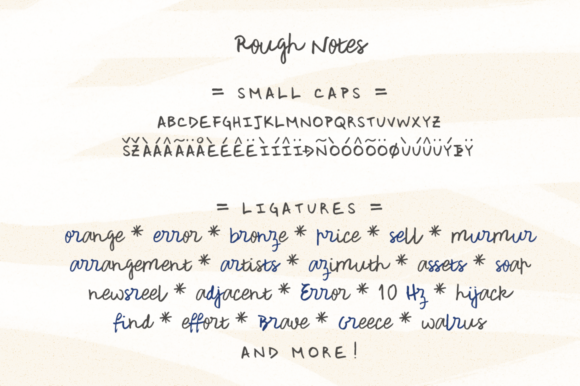 Rough Notes
= SMALL CAPS =
ABCDEFGHIJKLMNOPQRSTUVWXYZ
ŠŽÀÁÂÃÄÅÈÉÊËÌÍÎÏÐÑÒÓÔÕÖØÙÚÛÜÝÞŸ
= LIGATURES =
orange * error * bronze * price * sell * murmur
arrangement * artists * azimuth * assets * soap
newsreel * adjacent * Error * 10 Hz * hijack
find * effort * Brave * Greece * walrus
AND MORE!